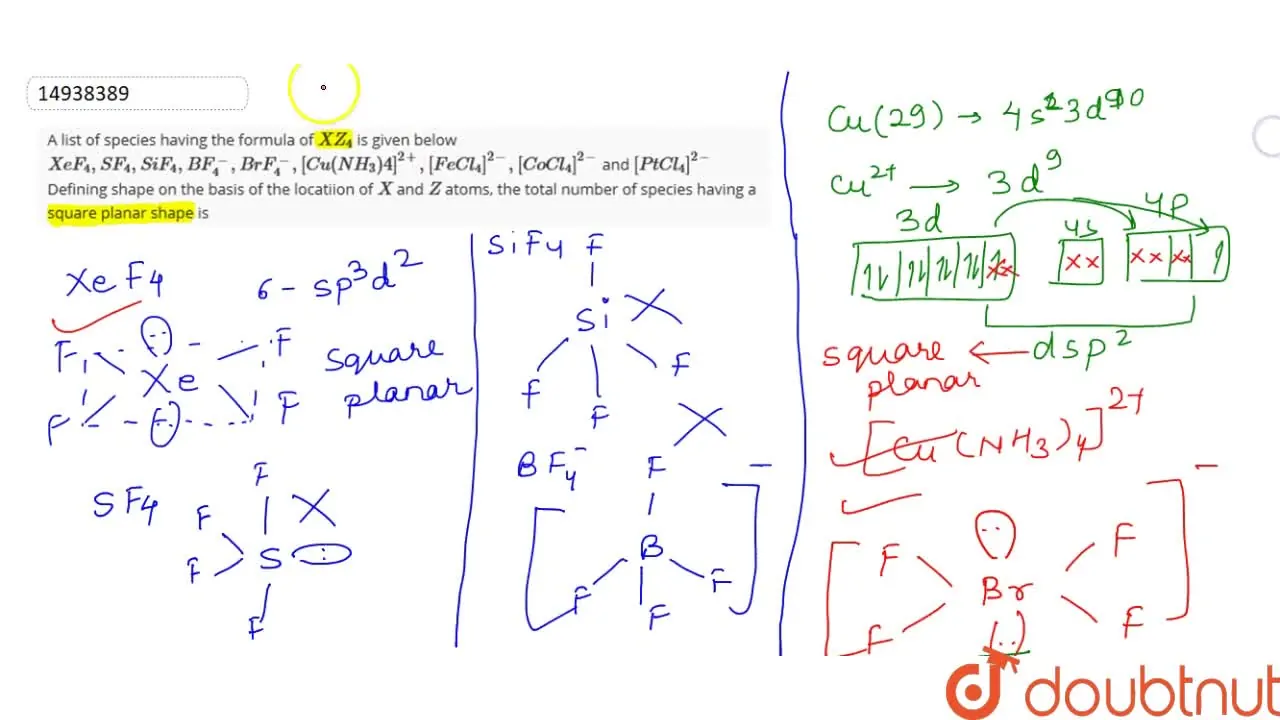 14938389
A list of species having the formula of XZ₄ is given below
XeF₄, SF₄, SiF₄, BF₄⁻, BrF₄⁻, [Cu(NH₃)4]²⁺, [FeCl₄]²⁻, [CoCl₄]²⁻ and [PtCl₄]²⁻
Defining shape on the basis of the locatiion of X and Z atoms, the total number of species having a
square planar shape is
XeF4
6 - sp³d²
F F
Xe
F F
square
planar
SF4
F
F
S
F
F
SiF4
F
Si
F F
F
BF4⁻
F
B
F F
F
−
Cu(29) → 4s 3d
Cu²⁺ → 3d⁹
3d 4s 4p
xx xx xx xx
square ← dsp²
planar
[Cu(NH3)4]²⁺
−
F F
Br
F F
doubtnut